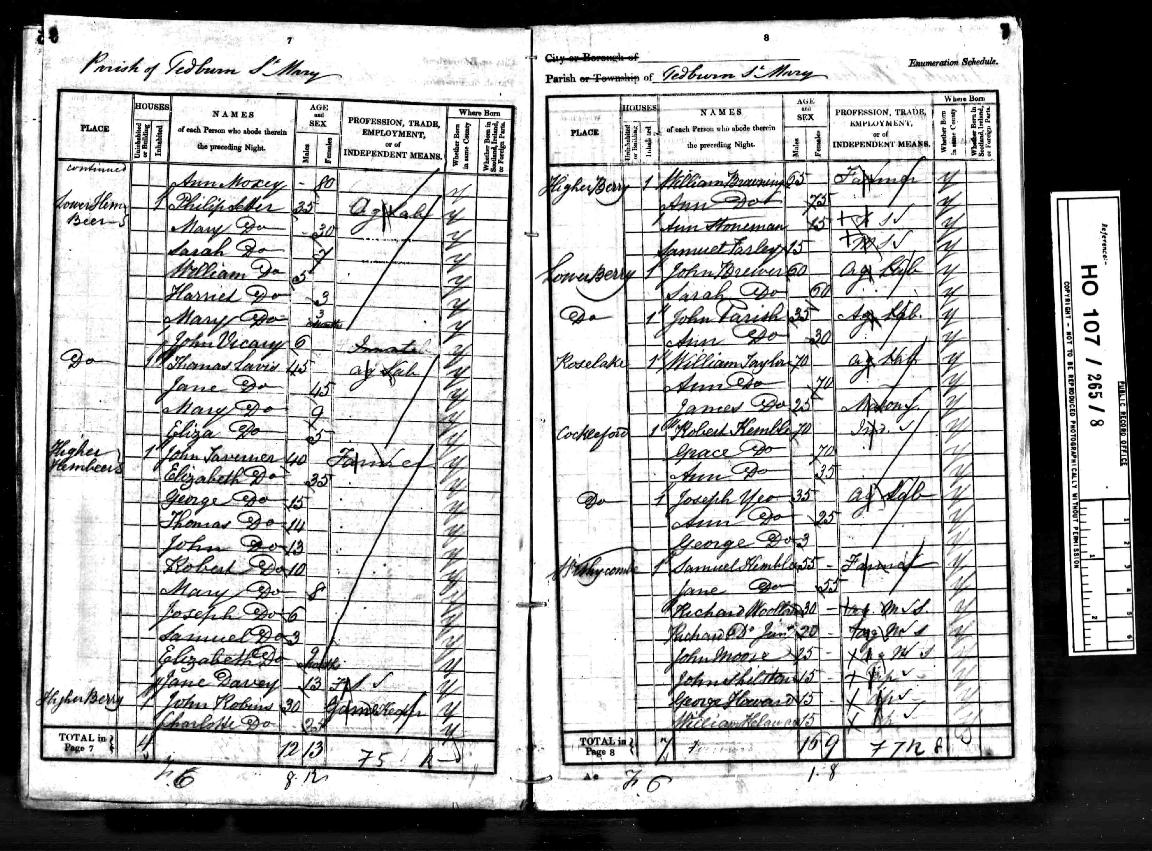 7
Parish of Tedburn St Mary
PLACE
HOUSES
Uninhabited or Building
Inhabited
NAMES
of each Person who abode therein
the preceding Night.
AGE and SEX
Males
Females
PROFESSION, TRADE,
EMPLOYMENT,
or of
INDEPENDENT MEANS.
Where Born
Whether Born in same County
Whether Born in Scotland, Ireland, or Foreign Parts.
continued
Ann Moxey - 80 y
Lower Hem Beer 1 Philip 35 Ag Lab y
Mary Do - 30 y
Sarah Do 7 y
William Do 5 y
Harriet Do - 3 y
Mary Do 3 months y
John Vicary 6 y
Do 1 Thomas Lavis 45 ag Lab y
Jane Do 45 y
Mary Do 9 y
Eliza Do 5 y
Higher Hembeer 1 John Taverner 40 Farmer y
Elizabeth Do 35 y
George Do 15 y
Thomas Do 14 y
John Do 13 y
Robert Do 10 y
Mary Do - 8 y
Joseph Do 6 y
Samuel Do 3 y
Elizabeth Do 9 months y
Jane Davey 13 F S y
Higher Berry 1 John Robins 30 Game Keep y
Charlotte Do - 25 y
TOTAL in Page 7 4 12 13 75
8
City or Borough of
Parish or Township of Tedburn St Mary
Enumeration Schedule.
PLACE
HOUSES
Uninhabited or Building
Inhabited
NAMES
of each Person who abode therein
the preceding Night.
AGE and SEX
Males
Females
PROFESSION, TRADE,
EMPLOYMENT,
or of
INDEPENDENT MEANS.
Where Born
Whether Born in same County
Whether Born in Scotland, Ireland, or Foreign Parts.
Higher Berry 1 William Browning 65 Farmer y
Ann Do 75 y
Ann Stoneman 15 y
Samuel Farley 15 M S y
Lower Berry 1 John Brewer 60 Ag Lab y
Sarah Do 60 y
Do 1 John Parish 35 Ag Lab y
Ann Do 30 y
Roselake 1 William Taylor 70 ag Lab y
Ann Do 70 y
James Do 25 Mason y
Cockleford 1 Robert Kemble 70 Ind y
Grace Do 70 y
Ann Do 35 y
Do 1 Joseph Yeo 35 ag Lab y
Ann Do 25 y
George Do 3 y
1 Samuel Kemble 55 Farmer y
Jane Do 55 y
Richard 30 ag M S y
Richard Do Junr 20 ag M S y
John Moore 25 ag M S y
John 15 y
George Howard 15 y
William 15 y
TOTAL in Page 8 7 16 9
Reference:-
HO 107 / 265 / 8
PUBLIC RECORD OFFICE
COPYRIGHT - NOT TO BE REPRODUCED PHOTOGRAPHICALLY WITHOUT PERMISSION